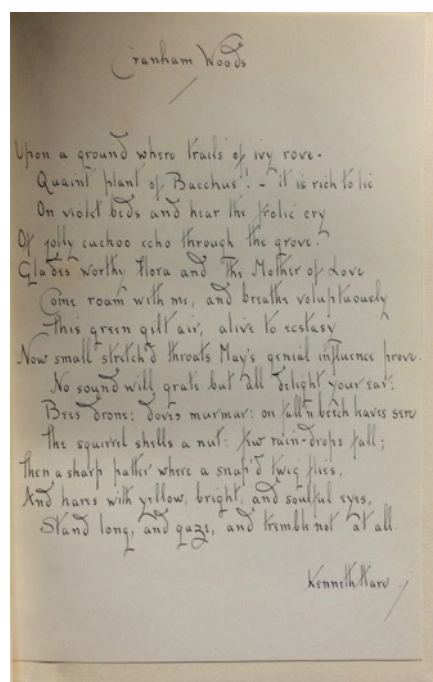 Cranham Woods
Upon a ground where trails of ivy rove -
Quaint plant of Bacchus! - it is rich to lie
On violet beds and hear the frolic cry
Of jolly cuckoo echo through the grove.
Glades worthy Flora and the Mother of Love
Come roam with me, and breathe voluptuously
This green gilt air, alive to ecstasy
Now small stretch'd throats May's genial influence prove.
No sound will grate but all delight your ear:
Bees drone: doves murmur: on fall'n beech leaves sere
The squirrel shells a nut: few rain-drops fall;
Then a sharp patter where a snap'd twig flies,
And hares with yellow, bright, and soulful eyes,
Stand long, and gaze, and tremble not at all.
Kenneth Hare